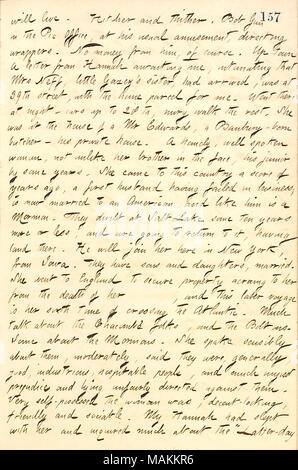 157
will live. Hither and thither. Bob Gun
in the Pic Office, at his usual amusement, directing
wrappers. No money from him, of course. Up town
a letter from Hannah awaiting me, intimating that
Mrs Neff, little Gazey's sister, had arrived, was at
39th street, with the home parcel for me. Went there
at night — cars up to 28th, walk the rest. She
was at the house of a Mr Edwards, a Banbury-born
butcher — his private house. A homely, well spoken
woman, not unlike her brother in the face, his junior
by some years. She came to this country a score of
years ago, a first husband having failed in business,
is now married to an American, and like him is a
Mormon. They dwelt at Salt Lake some ten years
more or less, and are going to return to it, having
land there. He will join her here in New York,
from Iowa. They have sons and daughters, married.
She went to England to secure property accruing to her
from the death of her , and this latter voyage
is her sixth time of crossing the Atlantic. Much
talk about the Chacombe folks, and the Boltons.
Some about the Mormons. She spoke sensibly
about them, moderately, said they were generally
good, industrious, hospitable people, and much unjust
prejudice and lying unfairly directed against them.
Very self-possessed the woman was, decent-looking,
friendly and sociable. My Hannah had slept
with her and inquired much about the "Latter-day
alamy
Image ID: MAKKR6
www.alamy.com